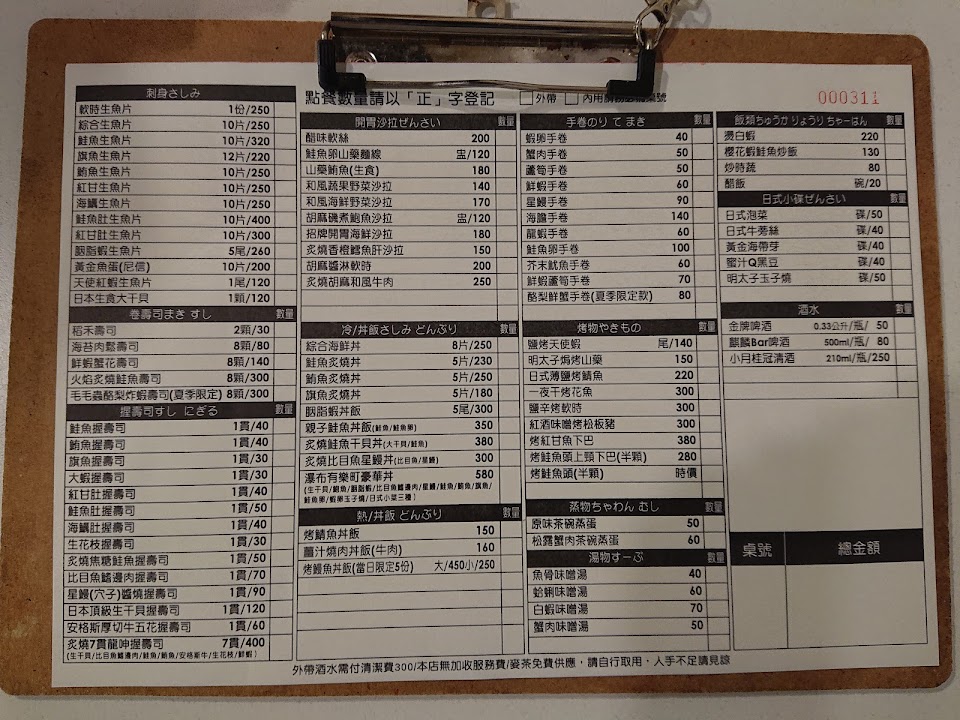 點餐數量請以「正」字登記 □外帶 □內用
000311
刺身さしみ
軟時生魚片 1份/250
綜合生魚片 10片/250
鮭魚生魚片 10片/320
旗魚生魚片 12片/220
鮪魚生魚片 10片/250
紅甘生魚片 10片/250
海鱺生魚片 10片/250
鮭魚肚生魚片 10片/400
紅甘肚生魚片 10片/300
胭脂蝦生魚片 5尾/260
黃金魚蛋(尼信) 10片/200
天使紅蝦生魚片 1尾/120
日本生食大干貝 1顆/120
卷壽司まき すし 數量
稻禾壽司 2顆/30
海苔肉鬆壽司 8顆/80
鮮蝦蟹花壽司 8顆/140
火焰炙燒鮭魚壽司 8顆/300
毛毛蟲酪梨炸蝦壽司(夏季限定) 8顆/300
握壽司すし にぎる 數量
鮭魚握壽司 1貫/40
鮪魚握壽司 1貫/40
旗魚握壽司 1貫/30
大蝦握壽司 1貫/30
紅甘肚握壽司 1貫/40
鮭魚肚握壽司 1貫/50
海鱺肚握壽司 1貫/40
生花枝握壽司 1貫/30
炙燒焦糖鮭魚握壽司 1貫/50
比目魚鰭邊肉握壽司 1貫/70
星鰻(穴子)醬燒握壽司 1貫/90
日本頂級生干貝握壽司 1貫/120
安格斯厚切牛五花握壽司 1貫/60
炙燒7貫龍呻握壽司 7貫/400
(生干貝/比目魚鰭邊肉/鮭魚/鮪魚/安格斯牛/生花枝/鮮蝦)
開胃沙拉ぜんさい 數量
醋味軟絲 200
鮭魚卵山藥麵線 盅/120
山藥鮪魚(生食) 180
和風蔬果野菜沙拉 140
和風海鮮野菜沙拉 170
胡麻磯煮鮑魚沙拉 盅/120
招牌開胃海鮮沙拉 180
炙燒香橙鱈魚肝沙拉 150
胡麻醬淋軟時 200
炙燒胡麻和風牛肉 250
冷/丼飯さしみ どんぶり 數量
綜合海鮮丼 8片/250
鮭魚炙燒丼 5片/230
鮪魚炙燒丼 5片/250
旗魚炙燒丼 5片/180
胭脂蝦丼飯 5尾/300
親子鮭魚丼飯(鮭魚/鮭魚卵) 350
炙燒鮭魚干貝丼(大干貝/鮭魚) 380
炙燒比目魚星鰻丼(比目魚/星鰻) 300
瀑布有樂町豪華丼 580
(生干貝/鮑魚/胭脂蝦/比目魚鰭邊肉/星鰻/鮭魚/鮪魚/旗魚/
鮭魚卵/蝦卵玉子燒/日式小菜三種)
熱/丼飯 どんぶり 數量
烤鯖魚丼飯 150
薑汁燒肉丼飯(牛肉) 160
烤鰻魚丼飯(當日限定5份) 大/450小/250
手卷のり て まき 數量
蝦卵手卷 40
蟹肉手卷 50
蘆筍手卷 50
鮮蝦手卷 60
星鰻手卷 90
海膽手卷 140
龍蝦手卷 60
鮭魚卵手卷 100
芥末魷魚手卷 60
鮮蝦蘆筍手卷 70
酪梨鮮蟹手卷(夏季限定款) 80
烤物やきもの 數量
鹽烤天使蝦 尾/140
明太子焗烤山藥 150
日式薄鹽烤鯖魚 220
一夜干烤花魚 300
鹽辛烤軟時 300
紅酒味噌烤松板豬 300
烤紅甘魚下巴 380
烤鮭魚頭上頸下巴(半顆) 280
烤鮭魚頭(半顆) 時價
蒸物ちゃわん むし 數量
原味茶碗蒸蛋 50
松露蟹肉茶碗蒸蛋 60
湯物すーぷ 數量
魚骨味噌湯 40
蛤蜊味噌湯 60
白蝦味噌湯 70
蟹肉味噌湯 50
飯類ちゅうか りょうり ちゃーはん 數量
燙白蝦 220
櫻花蝦鮭魚炒飯 130
炒時蔬 80
醋飯 碗/20
日式小碟ぜんさい 數量
日式泡菜 碟/50
日式牛蒡絲 碟/40
黃金海帶芽 碟/40
蜜汁Q黑豆 碟/40
明太子玉子燒 碟/50
酒水 數量
金牌啤酒 0.33公升/瓶/ 50
麒麟Bar啤酒 500ml/瓶/ 80
小月桂冠清酒 210ml/瓶/250
桌號 總金額
外帶酒水需付清潔費300/本店無加收服務費/麥茶免費供應，請自行取用，人手不足請見諒